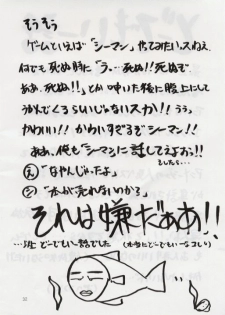 そうそう
ゲームといえば「シーマン」やってみたいスねぇ
何でも死ぬ時に「う、…死ぬ!!死ぬぞ
ああ、死ぬ!!」とか呻いた後に腹上にして
うかんでくるらしいじゃないスカ!!うぅっ
かわいい!!かわいすぎるぞシーマン!!
ああ、俺も「シーマンに話してえよぉっ!!
そしたら…
「なやんじゃったよ」
「本が売れないのかる」
それは嫌だぁあ!!
…注 どーでもいー話でした(本当にどーでもいーなコレ)